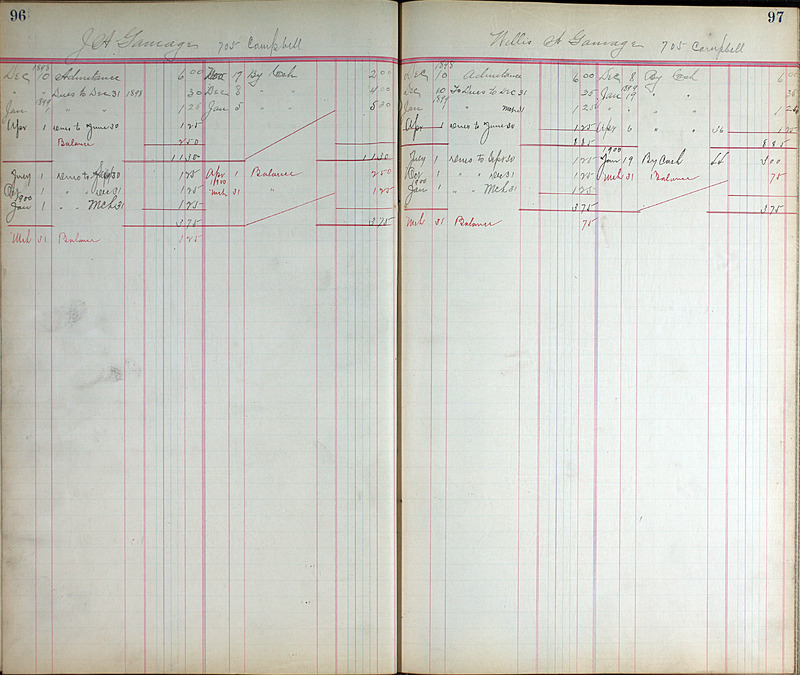 96
J. A. Gamage 705 Campbell
1898
Dec 10 Admittance 6 00 Nov 17 By Cash 2 00
" " Dues to Dec 31 1898 30 Dec 8 " " 4 00
1899
Jan 1 " " 1 25 Jan 5 " " 5 30
Apr 1 " to June 30 1 25
Balance 2 50
11 30 11 30
July 1 to Sep 30 1 25 Apr 1 Balance 2 50
1900
Oct 1 " " Dec 31 1 25 Mch 31 " 1 25
1900
Jan 1 " " Mch 31 1 25
3 75 3 75
Mch 31 Balance 1 25
97
Willis A Gamage 705 Campbell
1898
Dec 10 Admittance 6 00 Dec 8 By Cash 6 00
1899
Dec 10 To Dues to Dec 31 35 Jan 19 " " 35
1899
Jan " Mch 31 1 25 " " " 1 25
Apr 1 to June 30 1 25 Apr 6 " " 56 1 25
8 85 8 85
1900
July 1 to Sep 30 1 25 Jan 19 By Cash 3 00
Oct 1 " " Dec 31 1 25 Mch 31 Balance 75
1900
Jan 1 " " Mch 31 1 25
3 75 3 75
Mch 31 Balance 75